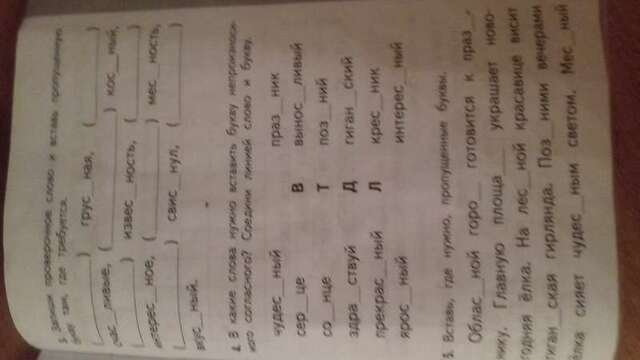 3. Запиши проверочное слово и вставь пропущенную
букву там, где требуется.
(__________) грус__ная, (__________)
счас__ливые, (__________) кос__ный,
(__________) извес__ность, (__________)
интерес__ное, (__________) мес__ность,
(__________) свис__нул, (__________)
вкус__ный.
4. В какие слова нужно вставить букву непроизноси-
мого согласного? Соедини линией слово и букву.
чудес__ный праз__ник
сер__це В вынос__ливый
со__нце Т поз__ний
здра__ствуй Д гиган__ский
прекрас__ный Л крес__ник
ярос__ный интерес__ный
5. Вставь, где нужно, пропущенные буквы.
Облас__ной горо__ готовится к праз__-
нику. Главную площа__ украшает ново-
годняя ёлка. На лес__ной красавице висит
гиган__ская гирлянда. Поз__ними вечерами
ёлка сияет чудес__ным светом. Мес__ный